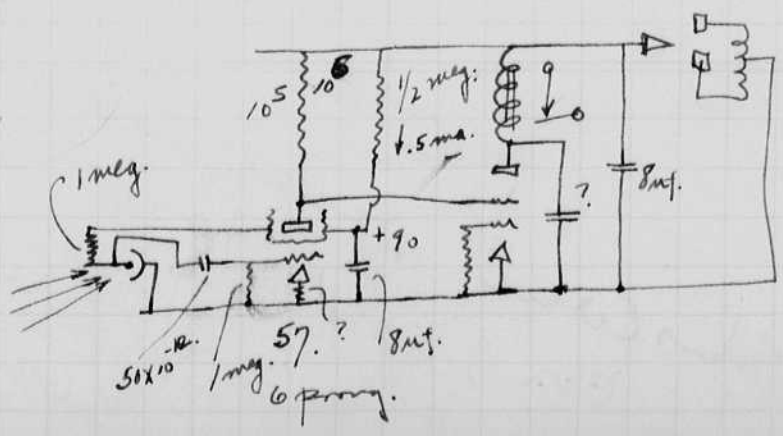 10⁵
10⁶
1/2 meg.
↓.5 ma.
1 meg.
?
8μf.
+90
50x10⁻¹².
1 meg.
57.
?
8μf.
6 prong.